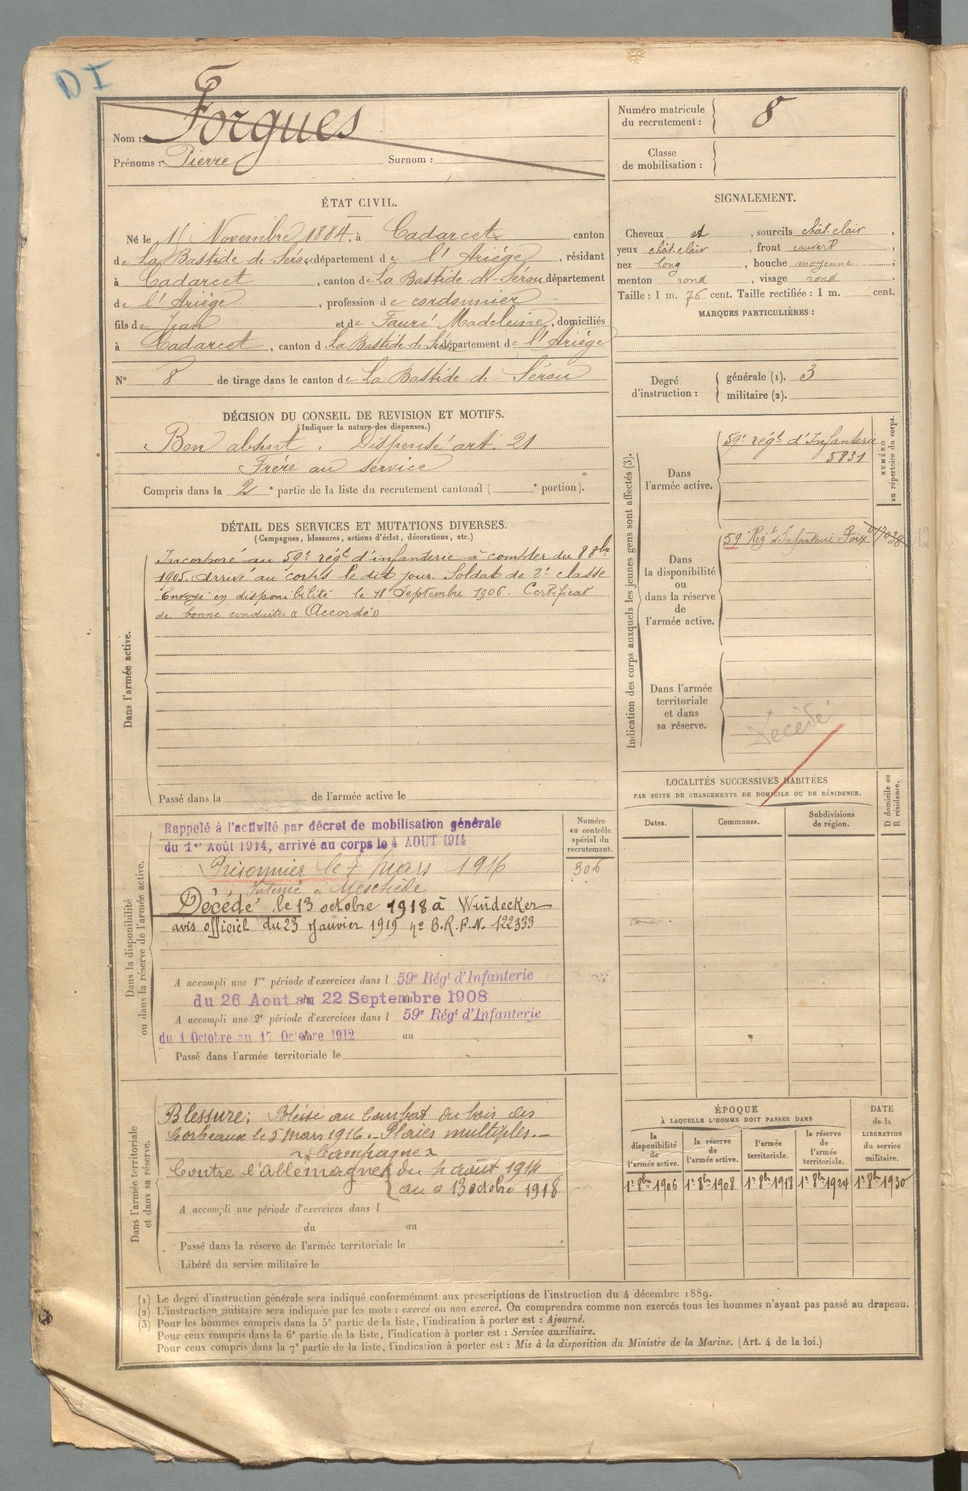 D I
Nom : Forgues
Prénoms : Pierre Surnom :
Numéro matricule
du recrutement : 8
Classe
de mobilisation :
ÉTAT CIVIL.
Né le 11 Novembre 1884, à Cadarcet canton
de La Bastide de Sérou, département de l'Ariége, résidant
à Cadarcet, canton de La Bastide de Sérou département
de l'Ariége, profession de cordonnier
fils de Jean et de Fauré Madeleine, domiciliés
à Cadarcet, canton d La Bastide de Sérou département de l'Ariége
N° 8 de tirage dans le canton de La Bastide de Sérou
SIGNALEMENT.
Cheveux et, sourcils chât. clair,
yeux chât. clair, front couvert,
nez long, bouche moyenne,
menton rond, visage rond
Taille : 1 m. 76 cent. Taille rectifiée : 1 m. cent.
MARQUES PARTICULIÈRES :
Degré
d'instruction :
générale (1). 3
militaire (2).
DÉCISION DU CONSEIL DE REVISION ET MOTIFS.
(Indiquer la nature des dispenses.)
Bon absent. Dispensé art. 21
Frère au service
Compris dans la 2e partie de la liste du recrutement cantonal ( e portion).
DÉTAIL DES SERVICES ET MUTATIONS DIVERSES.
(Campagnes, blessures, actions d'éclat, décorations, etc.)
Dans l'armée active.
Incorporé au 59e régt d'infanterie à compter du 8 8bre
1905. Arrivé au corps le dit jour. Soldat de 2e classe
Envoyé en disponibilité le 18 Septembre 1906. Certificat
de bonne conduite « Accordé »
Passé dans la de l'armée active le
Indication des corps auxquels les jeunes gens sont affectés (3).
NUMÉRO
au répertoire du corps.
Dans
l'armée active.
59e régt d'Infanterie
5831
Dans
la disponibilité
ou
dans la réserve
de
l'armée active.
59 Régt d'Infanterie Foix
Dans l'armée
territoriale
et dans
sa réserve.
Décédé
LOCALITÉS SUCCESSIVES HABITÉES
PAR SUITE DE CHANGEMENTS DE DOMICILE OU DE RÉSIDENCE.
Dates.
Communes.
Subdivisions
de région.
D domicile ou
R résidence.
Dans la disponibilité
ou dans la réserve de l'armée active.
Numéro
au contrôle
spécial du
recrutement.
306
Rappelé à l'activité par décret de mobilisation générale
du 1er Août 1914, arrivé au corps le 4 AOUT 1914
Prisonnier le 7 Mars 1916
Interné à Meschède
Décédé le 13 octobre 1918 à Windecker
avis officiel du 23 Janvier 1919 ne B.R.P.N. 122333
A accompli une 1re période d'exercices dans l 59e Régt d'Infanterie
du 26 Aout au 22 Septembre 1908
A accompli une 2e période d'exercices dans l 59e Régt d'Infanterie
du 1 Octobre au 17 Octobre 1912 au
Passé dans l'armée territoriale le
Dans l'armée territoriale
et dans sa réserve.
Blessure; Blessé au Combat du bois des
Corbeaux le 7 Mars 1916. Plaies multiples
Campagnes
Contre l'Allemagne du 4 août 1914
au 13 octobre 1918
A accompli une période d'exercices dans l
du au
Passé dans la réserve de l'armée territoriale le
Libéré du service militaire le
ÉPOQUE
À LAQUELLE L'HOMME DOIT PASSER DANS
la
disponibilité
de
l'armée active.
la réserve
de
l'armée active.
l'armée
territoriale.
la réserve
de
l'armée
territoriale.
DATE
de la
LIBÉRATION
du service
militaire.
1r 8bre 1906 1r 8bre 1908 1r 8bre 1918 1r 8bre 1924 1r 8bre 1930
(1) Le degré d'instruction générale sera indiqué conformément aux prescriptions de l'instruction du 4 décembre 1889.
(2) L'instruction militaire sera indiquée par les mots : exercé ou non exercé. On comprendra comme non exercés tous les hommes n'ayant pas passé au drapeau.
(3) Pour les hommes compris dans la 5e partie de la liste, l'indication à porter est : Ajourné.
Pour ceux compris dans la 6e partie de la liste, l'indication à porter est : Service auxiliaire.
Pour ceux compris dans la 7e partie de la liste, l'indication à porter est : Mis à la disposition du Ministre de la Marine. (Art. 4 de la loi.)